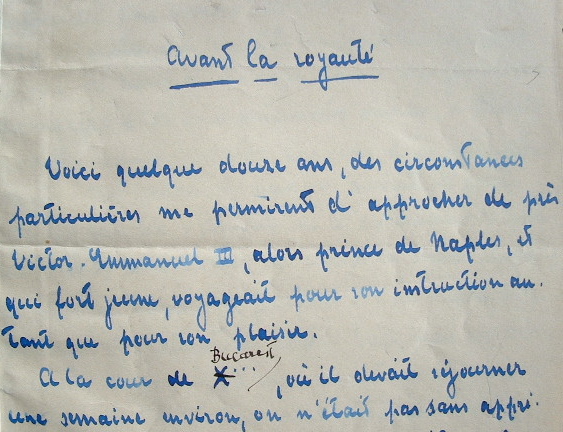 Avant la royauté
Voici quelque douze ans, des circonstances
particulières me permirent d'approcher de près
Victor-Emmanuel III, alors prince de Naples, et
qui fort jeune, voyageait pour son instruction au-
tant que pour son plaisir.
Bucarest
A la cour de X... , où il devait séjourner
une semaine environ, on n'était pas sans appré-